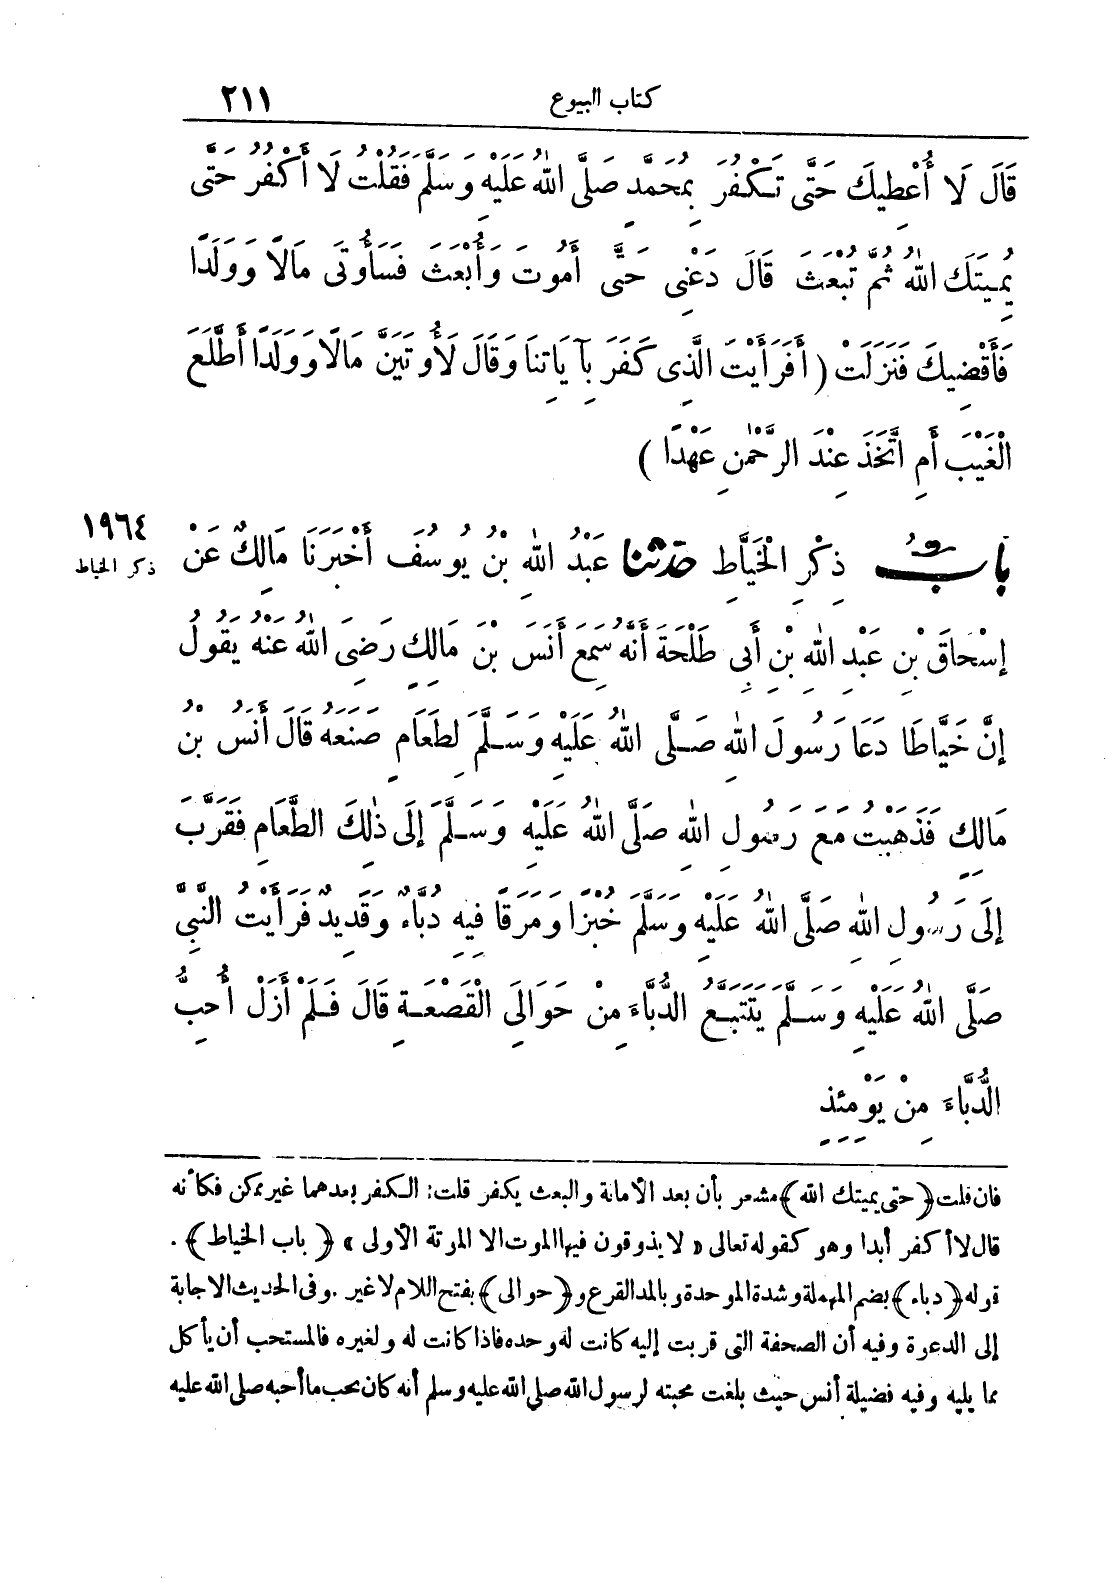 كتاب البيوع ٢١١
قَالَ لَا أُعْطِيكَ حَتَّى تَكْفُرَ بِمُحَمَّدٍ صَلَّى اللهُ عَلَيْهِ وَسَلَّمَ فَقُلْتُ لَا أَكْفُرُ حَتَّى
يُمِيتَكَ اللهُ ثُمَّ تُبْعَثَ قَالَ دَعْنِي حَتَّى أَمُوتَ وَأُبْعَثَ فَسَأُوتَى مَالًا وَوَلَدًا
فَأَقْضِيكَ فَنَزَلَتْ ( أَفَرَأَيْتَ الَّذِى كَفَرَ بِآيَاتِنَا وَقَالَ لَأُوتَيَنَّ مَالًا وَوَلَدًا أَطَّلَعَ
الْغَيْبَ أَمِ اتَّخَذَ عِنْدَ الرَّحْمٰنِ عَهْدًا )
بابُ ذِكْرِ الْخَيَّاطِ حدثنا عَبْدُ اللهِ بْنُ يُوسُفَ أَخْبَرَنَا مَالِكٌ عَنْ
١٩٦٤
ذكر الخياط
إِسْحَاقَ بْنِ عَبْدِ اللهِ بْنِ أَبِى طَلْحَةَ أَنَّهُ سَمِعَ أَنَسَ بْنَ مَالِكٍ رَضِىَ اللهُ عَنْهُ يَقُولُ
إِنَّ خَيَّاطًا دَعَا رَسُولَ اللهِ صَلَّى اللهُ عَلَيْهِ وَسَلَّمَ لِطَعَامٍ صَنَعَهُ قَالَ أَنَسُ بْنُ
مَالِكٍ فَذَهَبْتُ مَعَ رَسُولِ اللهِ صَلَّى اللهُ عَلَيْهِ وَسَلَّمَ إِلَى ذٰلِكَ الطَّعَامِ فَقَرَّبَ
إِلَى رَسُولِ اللهِ صَلَّى اللهُ عَلَيْهِ وَسَلَّمَ خُبْزًا وَمَرَقًا فِيهِ دُبَّاءٌ وَقَدِيدٌ فَرَأَيْتُ النَّبِيَّ
صَلَّى اللهُ عَلَيْهِ وَسَلَّمَ يَتَتَبَّعُ الدُّبَّاءَ مِنْ حَوَالَىِ الْقَصْعَةِ قَالَ فَلَمْ أَزَلْ أُحِبُّ
الدُّبَّاءَ مِنْ يَوْمِئِذٍ
فان قلت ﴿حتى يميتك الله﴾ مشعر بأن بعد الأماتة والبعث يكفر قلت: الكفر بعدهما غير ممكن فكأنه
قال لا أكفر أبدا وهو كقوله تعالى «لا يذوقون فيها الموت الا الموتة الأولى» ﴿باب الخياط﴾ .
قوله ﴿دباء﴾ بضم المهملة وشدة الموحدة وبالمد القرع و﴿حوالى﴾ بفتح اللام لا غير . وفى الحديث الاجابة
إلى الدعوة وفيه أن الصحفة التى قربت إليه كانت له وحده فاذا كانت له ولغيره فالمستحب أن يأكل
مما يليه وفيه فضيلة أنس حيث بلغت محبته لرسول الله صلى الله عليه وسلم أنه كان يحب ما أحبه صلى الله عليه